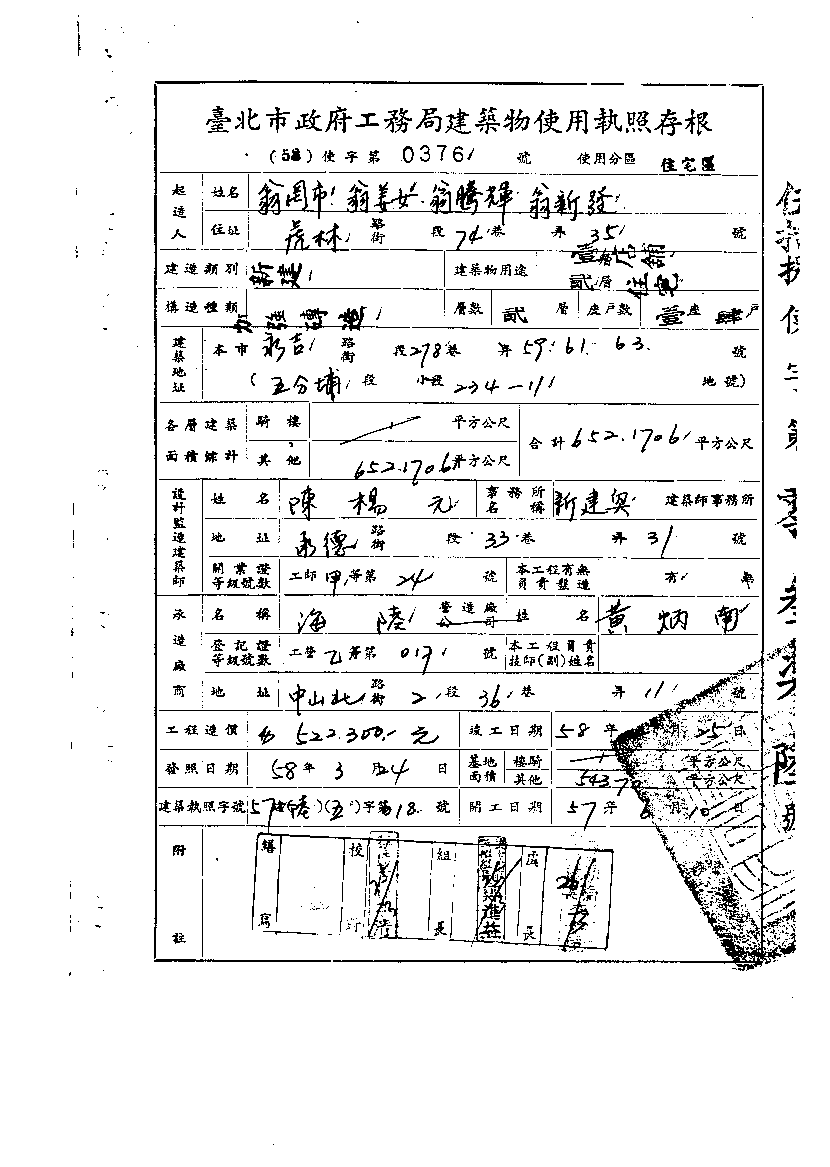 臺北市政府工務局建築物使用執照存根
(58)使字第 0376 號 使用分區 住宅區
起造人 姓名 翁周市 翁姜女 翁騰輝 翁新發
住址 虎林 路街 段 74 巷 弄 35 號
建造類別 新建 建築物用途 壹層店舖 貳層住宅
構造種類 加強磚造 層數 貳 層 座戶數 壹 座 肆 戶
建築地址 本市 永吉 路街 段 278 巷 弄 59. 61. 63. 號
(五分埔 段 小段 234-1 地號)
各層建築面積總計 騎樓 平方公尺 合計 652.1706 平方公尺
其他 652.1706 平方公尺
設計監造建築師 姓名 陳楊元 事務所名稱 新建築 建築師事務所
地址 承德 路街 段 33 巷 弄 31 號
開業證等級號數 工師 甲 等第 24 號 本工程有無負責監造 有 無
承造廠商 名稱 海陸 營造廠公司 姓名 黃炳南
登記證等級號數 工營 乙 等第 017 號 本工程負責技師(副)姓名
地址 中山北 路街 2 段 36 巷 弄 11 號
工程造價 522.300.- 元 竣工日期 58 年 25 日
發照日期 58 年 3 月 24 日 基地面積 樓騎 平方公尺
其他 平方公尺
建築執照字號 57 建(陸)(五)字第 18. 號 開工日期 57 年 6 月 10 日
附註
繕寫 校訂 組長 處長
使字第
陸號